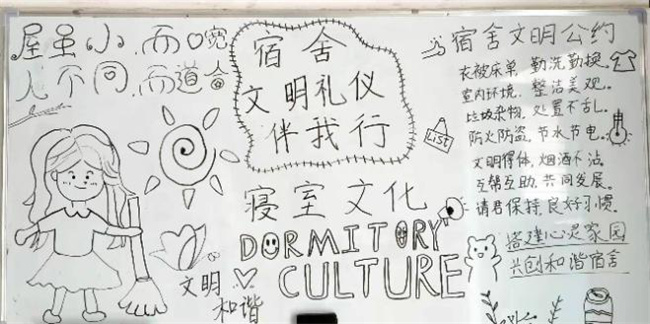 屋虽小,而口宽
人不同,而道合
宿舍
文明礼仪
伴我行
寝室文化
DORMITORY
CULTURE
文明
和谐
宿舍文明公约
衣被床单,勤洗勤换。
室内环境,整洁美观。
垃圾杂物,处置不乱。
防火防盗,节水节电。
文明得体,烟酒不沾。
互帮互助,共同发展。
请君保持,良好习惯。
List
搭建心灵家园
共创和谐宿舍